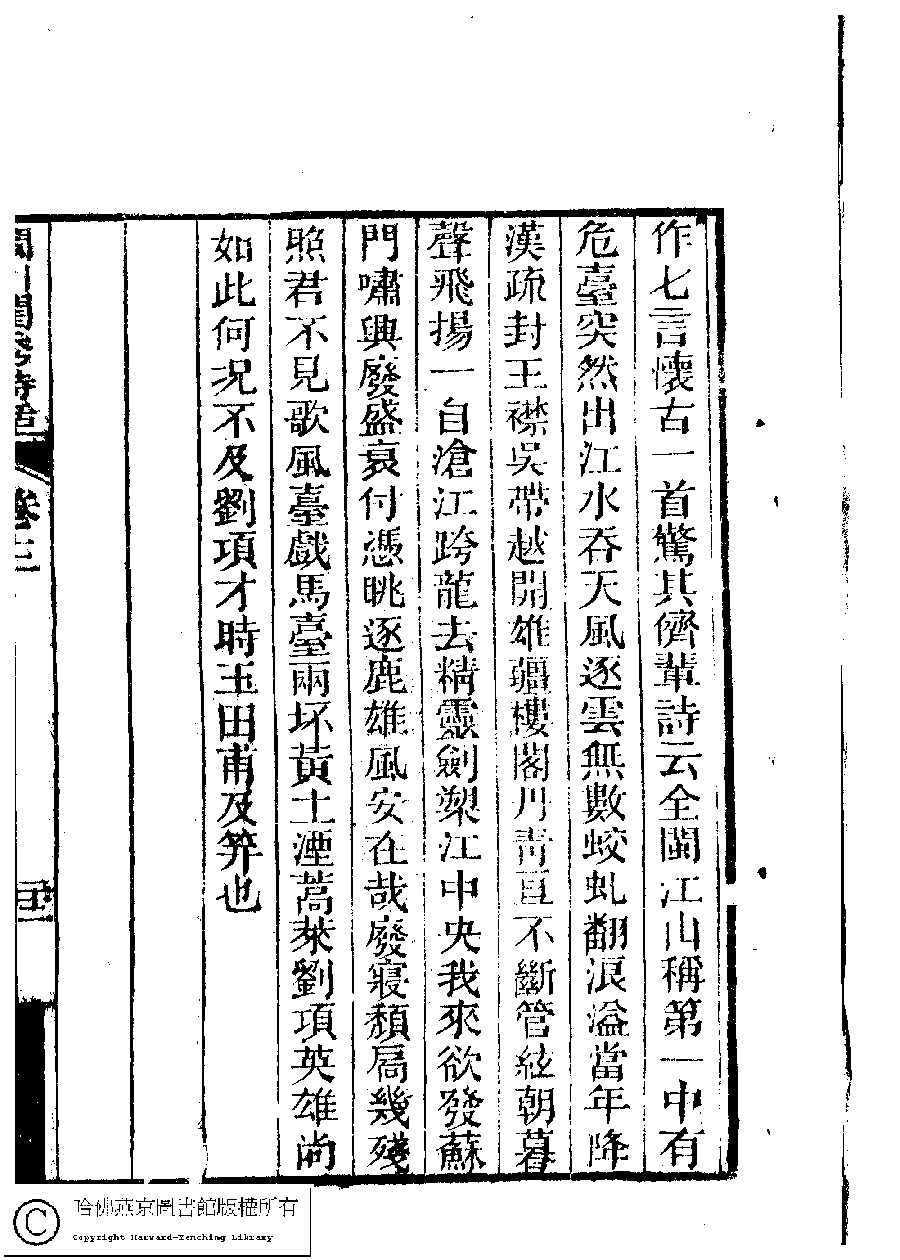 作七言懷古一首驚其儕輩詩云全閩江山稱第一中有
危臺突然出江水吞天風逐雲無數蛟虬翻浪溢當年降
漢疏封王襟吳帶越開雄疆樓閣丹青亘不斷管絃朝暮
聲飛揚一自滄江跨龍去精靈劍槊江中央我來欲發蘇
門嘯興廢盛衰付憑眺逐鹿雄風安在哉廢寢頹扃幾殘
照君不見歌風臺戲馬臺兩坏黃土湮蒿萊劉項英雄尚
如此何况不及劉項才時玉田甫及笄也
閩川閨秀詩話
卷三
哈佛燕京圖書館版權所有
Copyright Harvard-Yenching Library